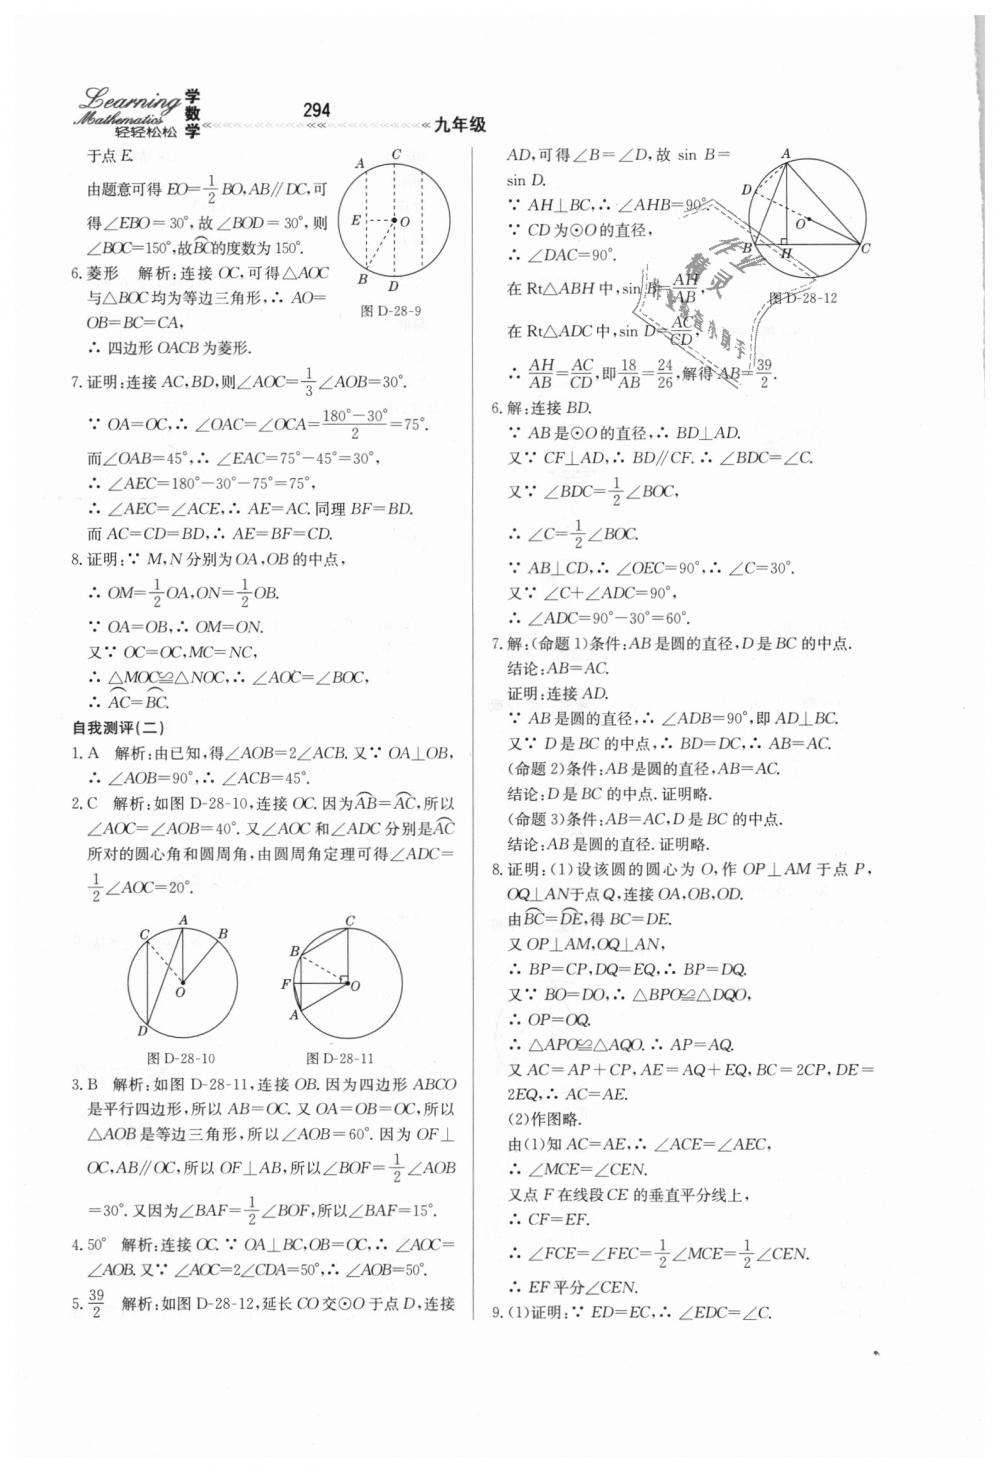 Learning
Mathematics
轻轻松松
学数学
294
九年级
于点E.
由题意可得 EO=1/2 BO,AB∥DC,可
得∠EBO=30°,故∠BOD=30°,则
∠BOC=150°,故BC的度数为 150°.
6. 菱形 解析:连接 OC,可得△AOC
与△BOC均为等边三角形,∴ AO=
OB=BC=CA,
∴ 四边形 OACB 为菱形.
C
A
E
O
B
D
图 D-28-9
7. 证明:连接 AC,BD,则∠AOC=1/3∠AOB=30°.
∵ OA=OC,∴ ∠OAC=∠OCA=(180°-30°)/2=75°.
而∠OAB=45°,∴ ∠EAC=75°-45°=30°,
∴ ∠AEC=180°-30°-75°=75°,
∴ ∠AEC=∠ACE,∴ AE=AC. 同理 BF=BD.
而 AC=CD=BD,∴ AE=BF=CD.
8. 证明:∵ M,N 分别为 OA,OB 的中点,
∴ OM=1/2 OA,ON=1/2 OB.
∵ OA=OB,∴ OM=ON.
又∵ OC=OC,MC=NC,
∴ △MOC≌△NOC,∴ ∠AOC=∠BOC,
∴ AC=BC.
自我测评(二)
1. A 解析:由已知,得∠AOB=2∠ACB. 又∵ OA⊥OB,
∴ ∠AOB=90°,∴ ∠ACB=45°.
2. C 解析:如图 D-28-10,连接 OC. 因为AB=AC,所以
∠AOC=∠AOB=40°. 又∠AOC 和∠ADC 分别是AC
所对的圆心角和圆周角,由圆周角定理可得∠ADC=
1/2∠AOC=20°.
A
C
B
O
D
图 D-28-10
C
B
F
O
A
图 D-28-11
3. B 解析:如图 D-28-11,连接 OB. 因为四边形 ABCO
是平行四边形,所以 AB=OC. 又 OA=OB=OC,所以
△AOB 是等边三角形,所以∠AOB=60°. 因为 OF⊥
OC,AB∥OC,所以 OF⊥AB,所以∠BOF=1/2∠AOB
=30°. 又因为∠BAF=1/2∠BOF,所以∠BAF=15°.
4. 50° 解析:连接 OC. ∵ OA⊥BC,OB=OC,∴ ∠AOC=
∠AOB. 又∵ ∠AOC=2∠CDA=50°,∴ ∠AOB=50°.
5. 39/2 解析:如图 D-28-12,延长 CO 交⊙O 于点 D,连接
AD,可得∠B=∠D,故 sin B=
sin D.
∵ AH⊥BC,∴ ∠AHB=90°.
∵ CD 为⊙O 的直径,
∴ ∠DAC=90°.
在 Rt△ABH 中,sin B=AH/AB,
在 Rt△ADC 中,sin D=AC/CD,
∴ AH/AB=AC/CD,即18/AB=24/26,解得 AB=39/2.
A
D
O
B
H
C
图 D-28-12
作业
精灵
作业检查小助手
6. 解:连接 BD.
∵ AB 是⊙O 的直径,∴ BD⊥AD.
又∵ CF⊥AD,∴ BD∥CF. ∴ ∠BDC=∠C.
又∵ ∠BDC=1/2∠BOC,
∴ ∠C=1/2∠BOC.
∵ AB⊥CD,∴ ∠OEC=90°,∴ ∠C=30°.
又∵ ∠C+∠ADC=90°,
∴ ∠ADC=90°-30°=60°.
7. 解:(命题 1)条件:AB 是圆的直径,D 是 BC 的中点.
结论:AB=AC.
证明:连接 AD.
∵ AB 是圆的直径,∴ ∠ADB=90°,即 AD⊥BC.
又∵ D 是 BC 的中点,∴ BD=DC,∴ AB=AC.
(命题 2)条件:AB 是圆的直径,AB=AC.
结论:D 是 BC 的中点. 证明略.
(命题 3)条件:AB=AC,D 是 BC 的中点.
结论:AB 是圆的直径. 证明略.
8. 证明:(1)设该圆的圆心为 O,作 OP⊥AM 于点 P,
OQ⊥AN于点 Q,连接 OA,OB,OD.
由BC=DE,得 BC=DE.
又 OP⊥AM,OQ⊥AN,
∴ BP=CP,DQ=EQ,∴ BP=DQ.
又∵ BO=DO,∴ △BPO≌△DQO,
∴ OP=OQ.
∴ △APO≌△AQO. ∴ AP=AQ.
又 AC=AP+CP,AE=AQ+EQ,BC=2CP,DE=
2EQ,∴ AC=AE.
(2)作图略.
由(1)知 AC=AE,∴ ∠ACE=∠AEC,
∴ ∠MCE=∠CEN.
又点 F 在线段 CE 的垂直平分线上,
∴ CF=EF.
∴ ∠FCE=∠FEC=1/2∠MCE=1/2∠CEN.
∴ EF 平分∠CEN.
9. (1)证明:∵ ED=EC,∴ ∠EDC=∠C.